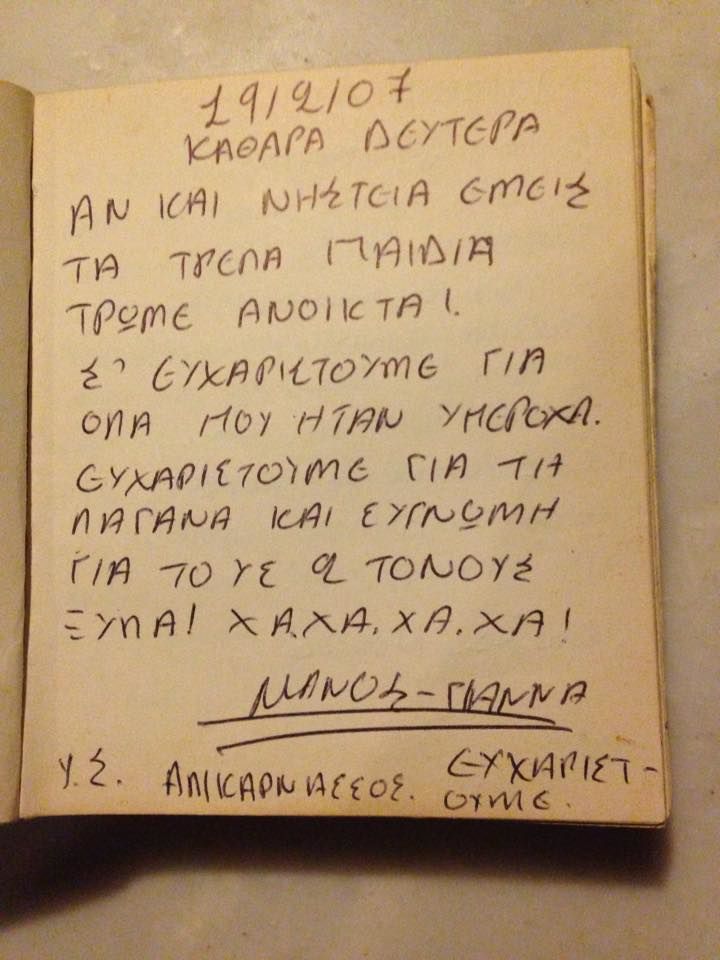 19/2/07
ΚΑΘΑΡΑ ΔΕΥΤΕΡΑ
ΑΝ ΚΑΙ ΝΗΣΤΕΙΑ ΕΜΕΙΣ
ΤΑ ΤΡΕΛΑ ΠΑΙΔΙΑ
ΤΡΩΜΕ ΑΝΟΙΚΤΑ!.
Σ' ΕΥΧΑΡΙΣΤΟΥΜΕ ΓΙΑ
ΟΛΑ ΠΟΥ ΗΤΑΝ ΥΠΕΡΟΧΑ.
ΕΥΧΑΡΙΣΤΟΥΜΕ ΓΙΑ ΤΙΑ
ΛΑΓΑΝΑ ΚΑΙ ΣΥΓΝΩΜΗ
ΓΙΑ ΤΟΥΣ 2 ΤΟΝΟΥΣ
ΞΥΛΑ! ΧΑ.ΧΑ.ΧΑ.ΧΑ!
ΜΑΝΟΣ-ΓΙΑΝΝΑ
Υ.Σ. ΑΛΙΚΑΡΝΑΣΣΟΣ. ΕΥΧΑΡΙΣΤ-
ΟΥΜΕ.